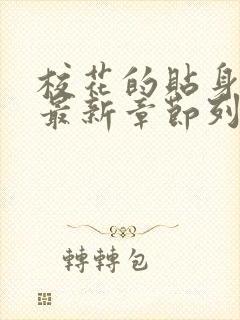 校花的貼身
最新章節列
轉轉包